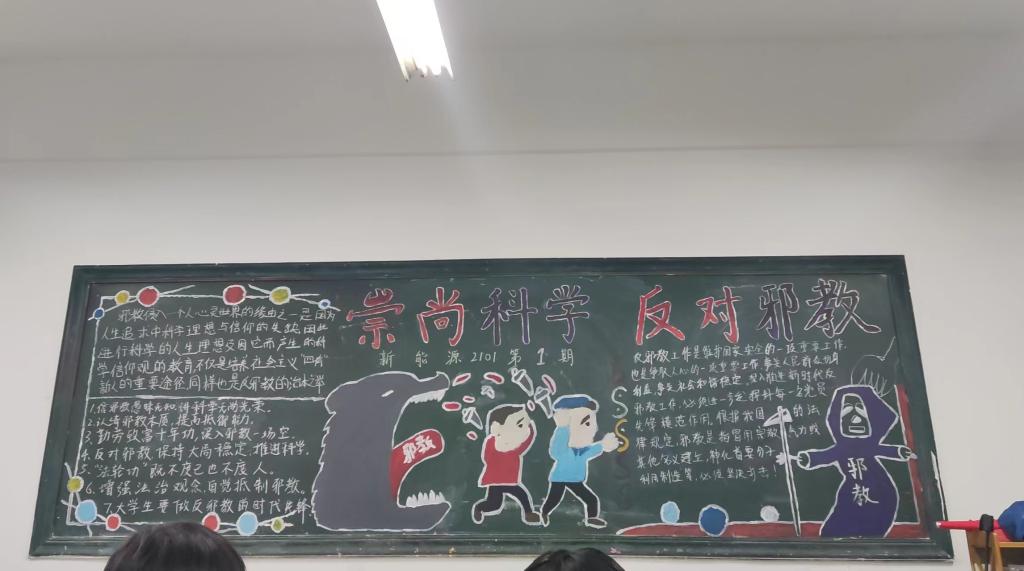 崇尚科学 反对邪教
新能源2101第1期
邪教侵入一个人心灵世界的缘由之一是因为
人生追求中科学理想与信仰的失落,因此
进行科学的人生理想及因它而产生的科
学信仰观的教育不仅是培养社会主义"四有"
新人的重要途径同样也是人邪教的治本之举
1.信邪教愚昧无知 讲科学无尚光荣。
2.认清邪教本质,提高抵御能力。
3.勤劳致富十年功,误入邪教一场空。
4.反对邪教 保持大局稳定,推进科学。
5."法轮功"既不度己也不度人。
6.增强法治观念,自觉抵制邪教。
7.大学生要做反邪教的时代先锋
邪教
反邪教工作是维护国家安全的一项重要工作,
也是争取人心的一项重要工作,事关人民群众切身
利益,事关社会和谐稳定
邪教工作,必须进一步
先锋模范作用。根据我国 的法
律规定,邪教是指冒用宗教、气功或
其他名义建立、神化首要分子
利用制造
邪教